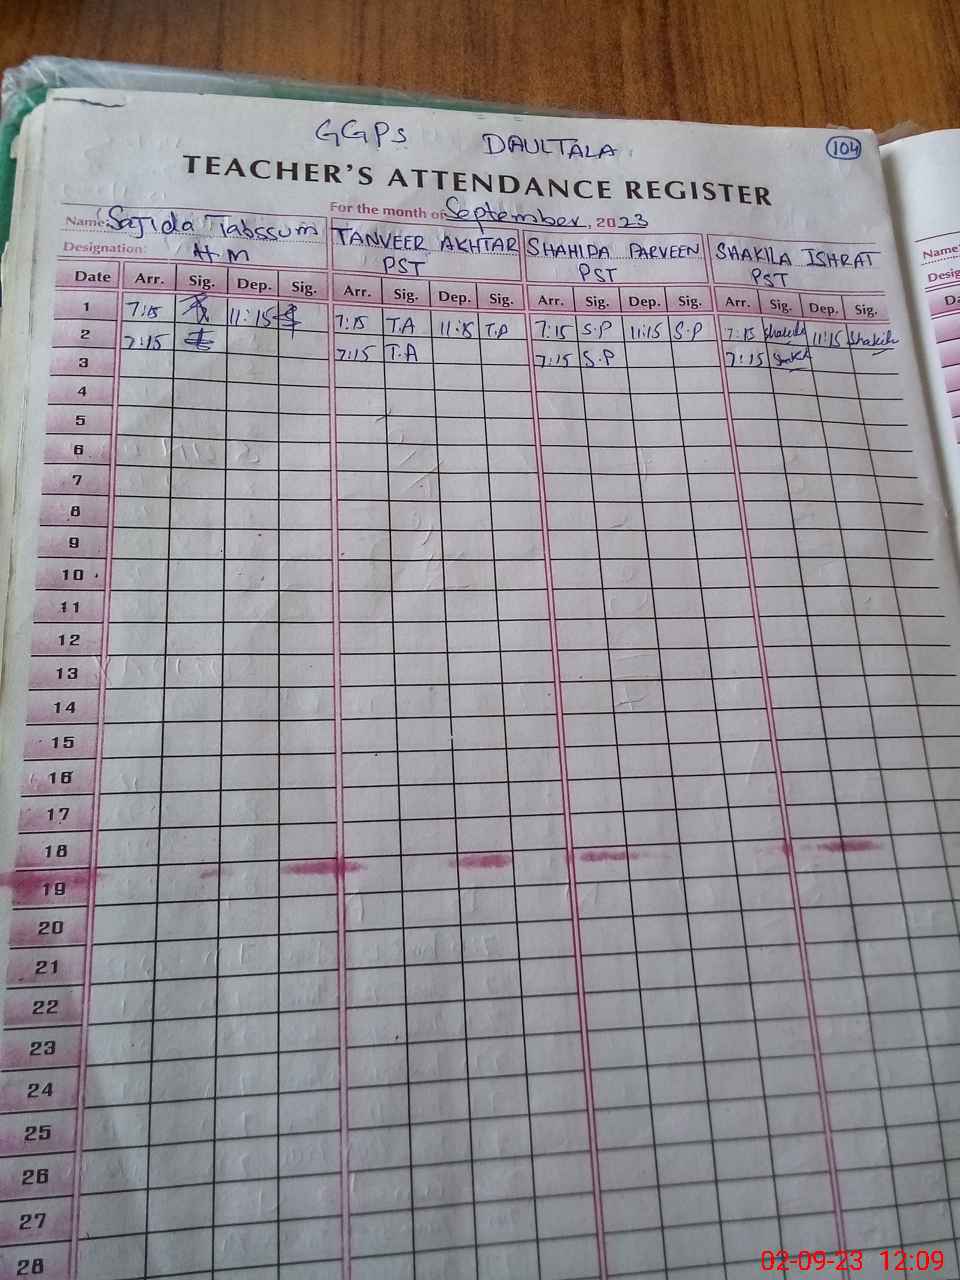 GGPS DAULTALA 104
TEACHER'S ATTENDANCE REGISTER
For the month of September, 2023
Name: Sajida Tabssum TANVEER AKHTAR SHAHIDA PARVEEN SHAKILA ISHRAT Name:
Designation: H M PST PST PST
Date Arr. Sig. Dep. Sig. Arr. Sig. Dep. Sig. Arr. Sig. Dep. Sig. Arr. Sig. Dep. Sig.
1 7:15 11:15 7:15 T.A 11:15 T.A 7:15 S.P 11:15 S.P 7:15 Shakila 11:15 Shakila
2 7:15 7:15 T.A 7:15 S.P 7:15
3
4
5
6
7
8
9
10
11
12
13
14
15
16
17
18
19
20
21
22
23
24
25
26
27
28
02-09-23 12:09